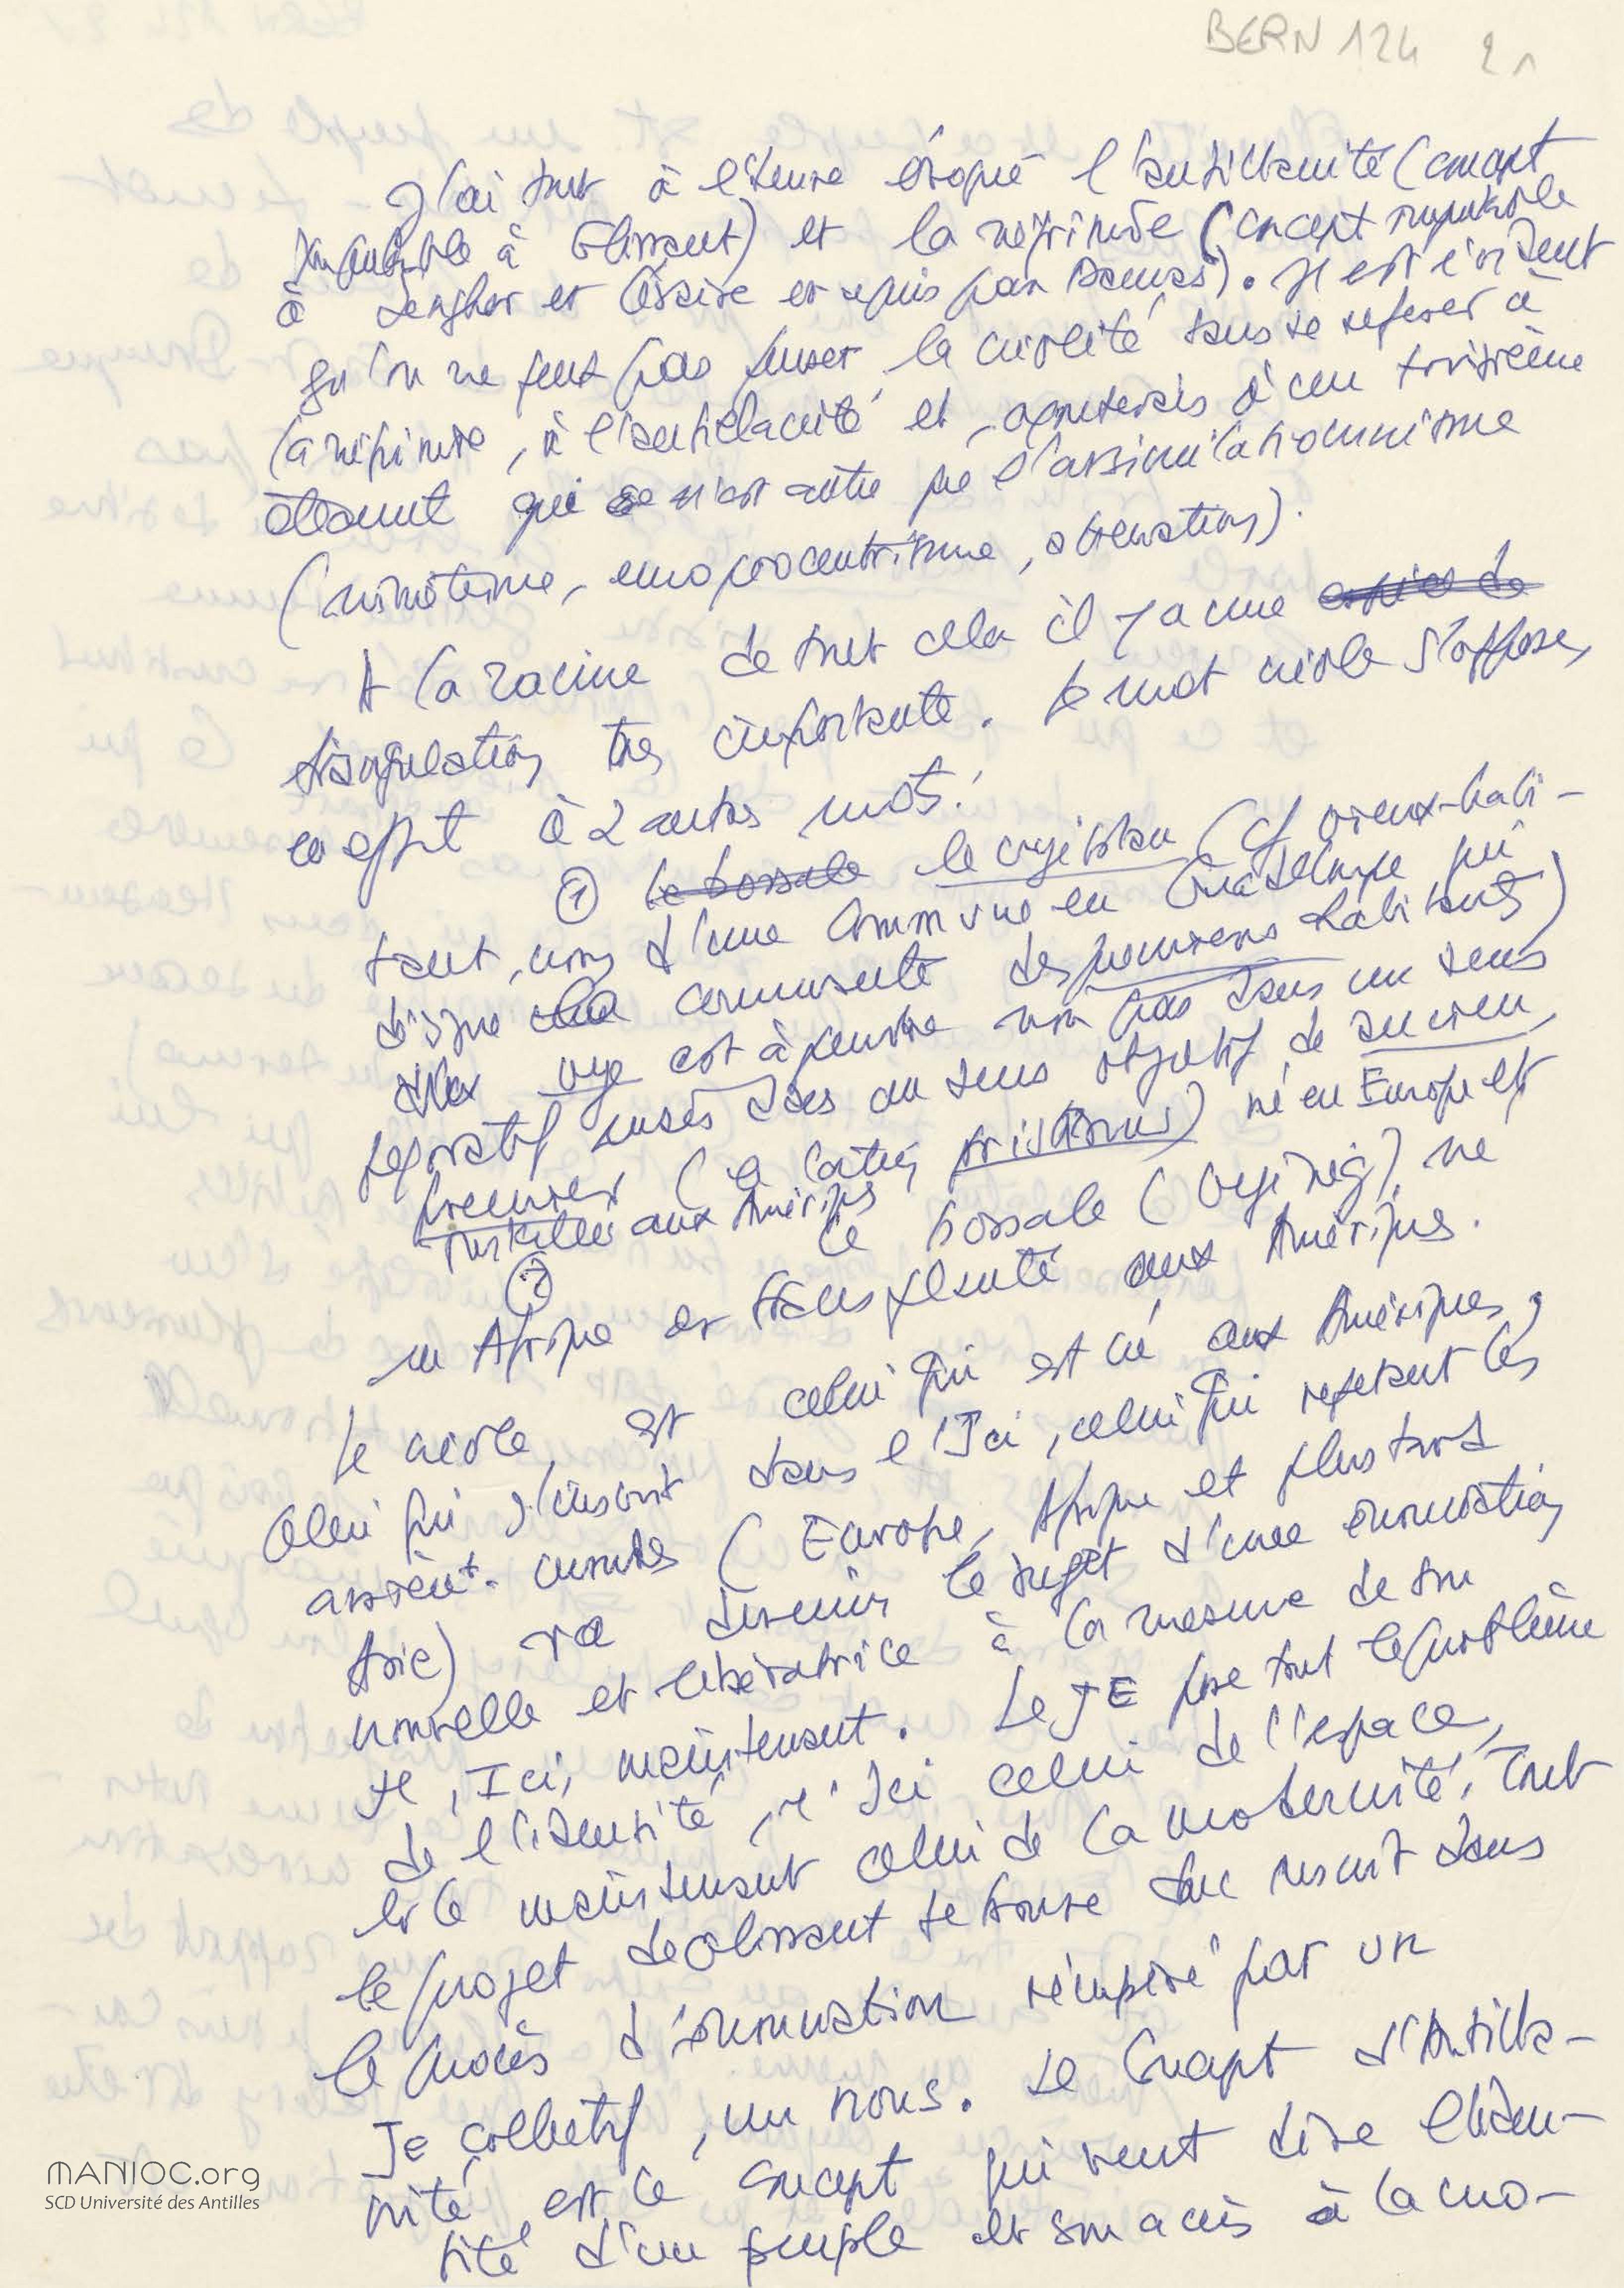 BERN 124 21
J'ai tout à l'heure évoqué l'antillanité (concept
imputable à Glissant) et la négritude (concept imputable
à Senghor et Césaire et repris par Damas). Il est évident
qu'on ne peut pas penser la créolité sans se référer à
la négritude, à l'antillanité et, a contrario à un troisième
élément qui n'est autre que l'assimilationnisme
(mimétisme, européocentrisme, aliénation).
A la racine de tout cela il y a une espèce de
triangulation très importante. Le mot créole s'oppose,
en effet à 2 autres mots:
① le bossale le vyé bitan (cf vieux-habi-
tant, nom d'une commune en Guadeloupe qui
désigne la communauté des premiers habitants)
vyé est à prendre non pas dans un sens
péjoratif mais dans au sens objectif de ancien,
premier (le latin pristinus) né en Europe et
installé aux Amériques
② Le bossale (vyé nèg), né
en Afrique et transplanté aux Amériques.
Le créole, est celui qui est né aux Amériques,
celui qui s'inscrit dans l'Ici, celui qui rejetant les
arrière-mondes (Europe, Afrique et plus tard
Asie) va devenir le sujet d'une énonciation
nouvelle et libératrice à la mesure de son
Je, Ici, maintenant. Le JE pose tout le problème
de l'identité, l'Ici celui de l'espace,
et le maintenant celui de la modernité. Tout
le projet de Glissant se trouve donc inscrit dans
le procès d'énonciation récupéré par un
Je collectif, un nous. Le concept d'Antilla-
nité est le concept qui veut dire l'iden-
tité d'un peuple et son accès à la mo-
MANIOC.org
SCD Université des Antilles